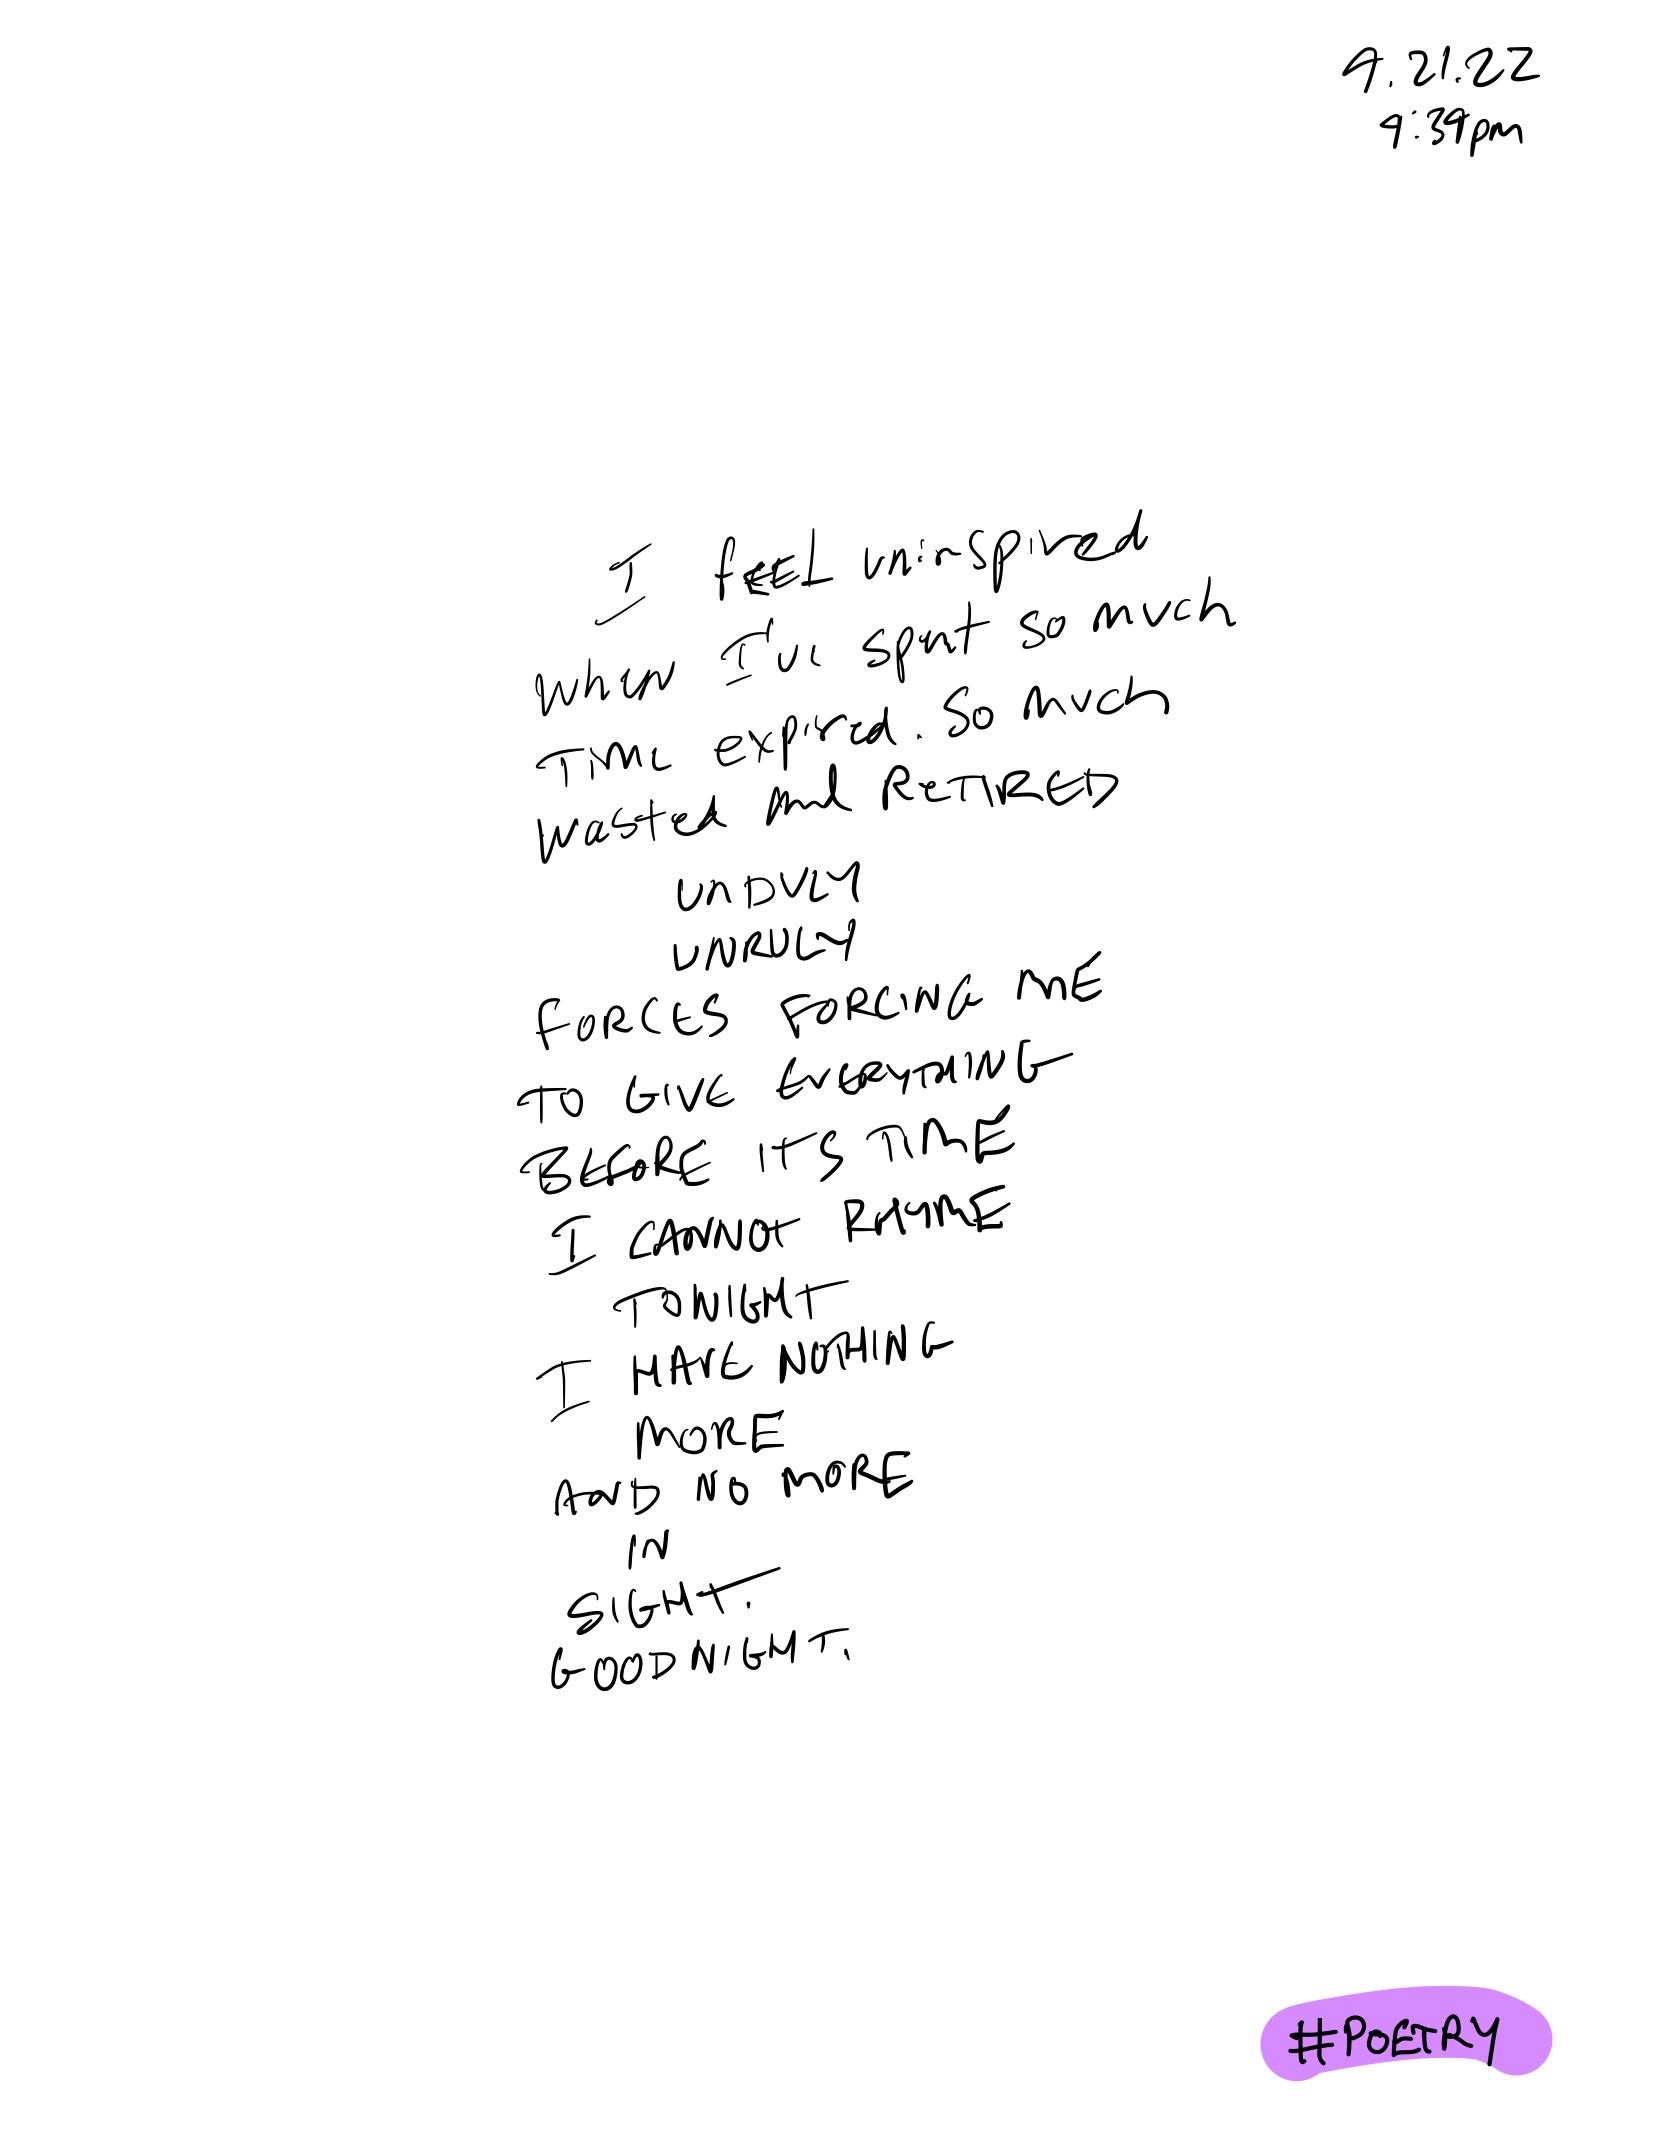 9.21.22
9:39pm
I feel uninspired
when I've spent so much
Time expired. So much
wasted and RETIRED
UNDULY
UNRULY
FORCES FORCING ME
TO GIVE EVERYTHING
BEFORE IT'S TIME
I CANNOT RHYME
TONIGHT
I HAVE NOTHING
MORE
AND NO MORE
IN
SIGHT.
GOODNIGHT.
#POETRY